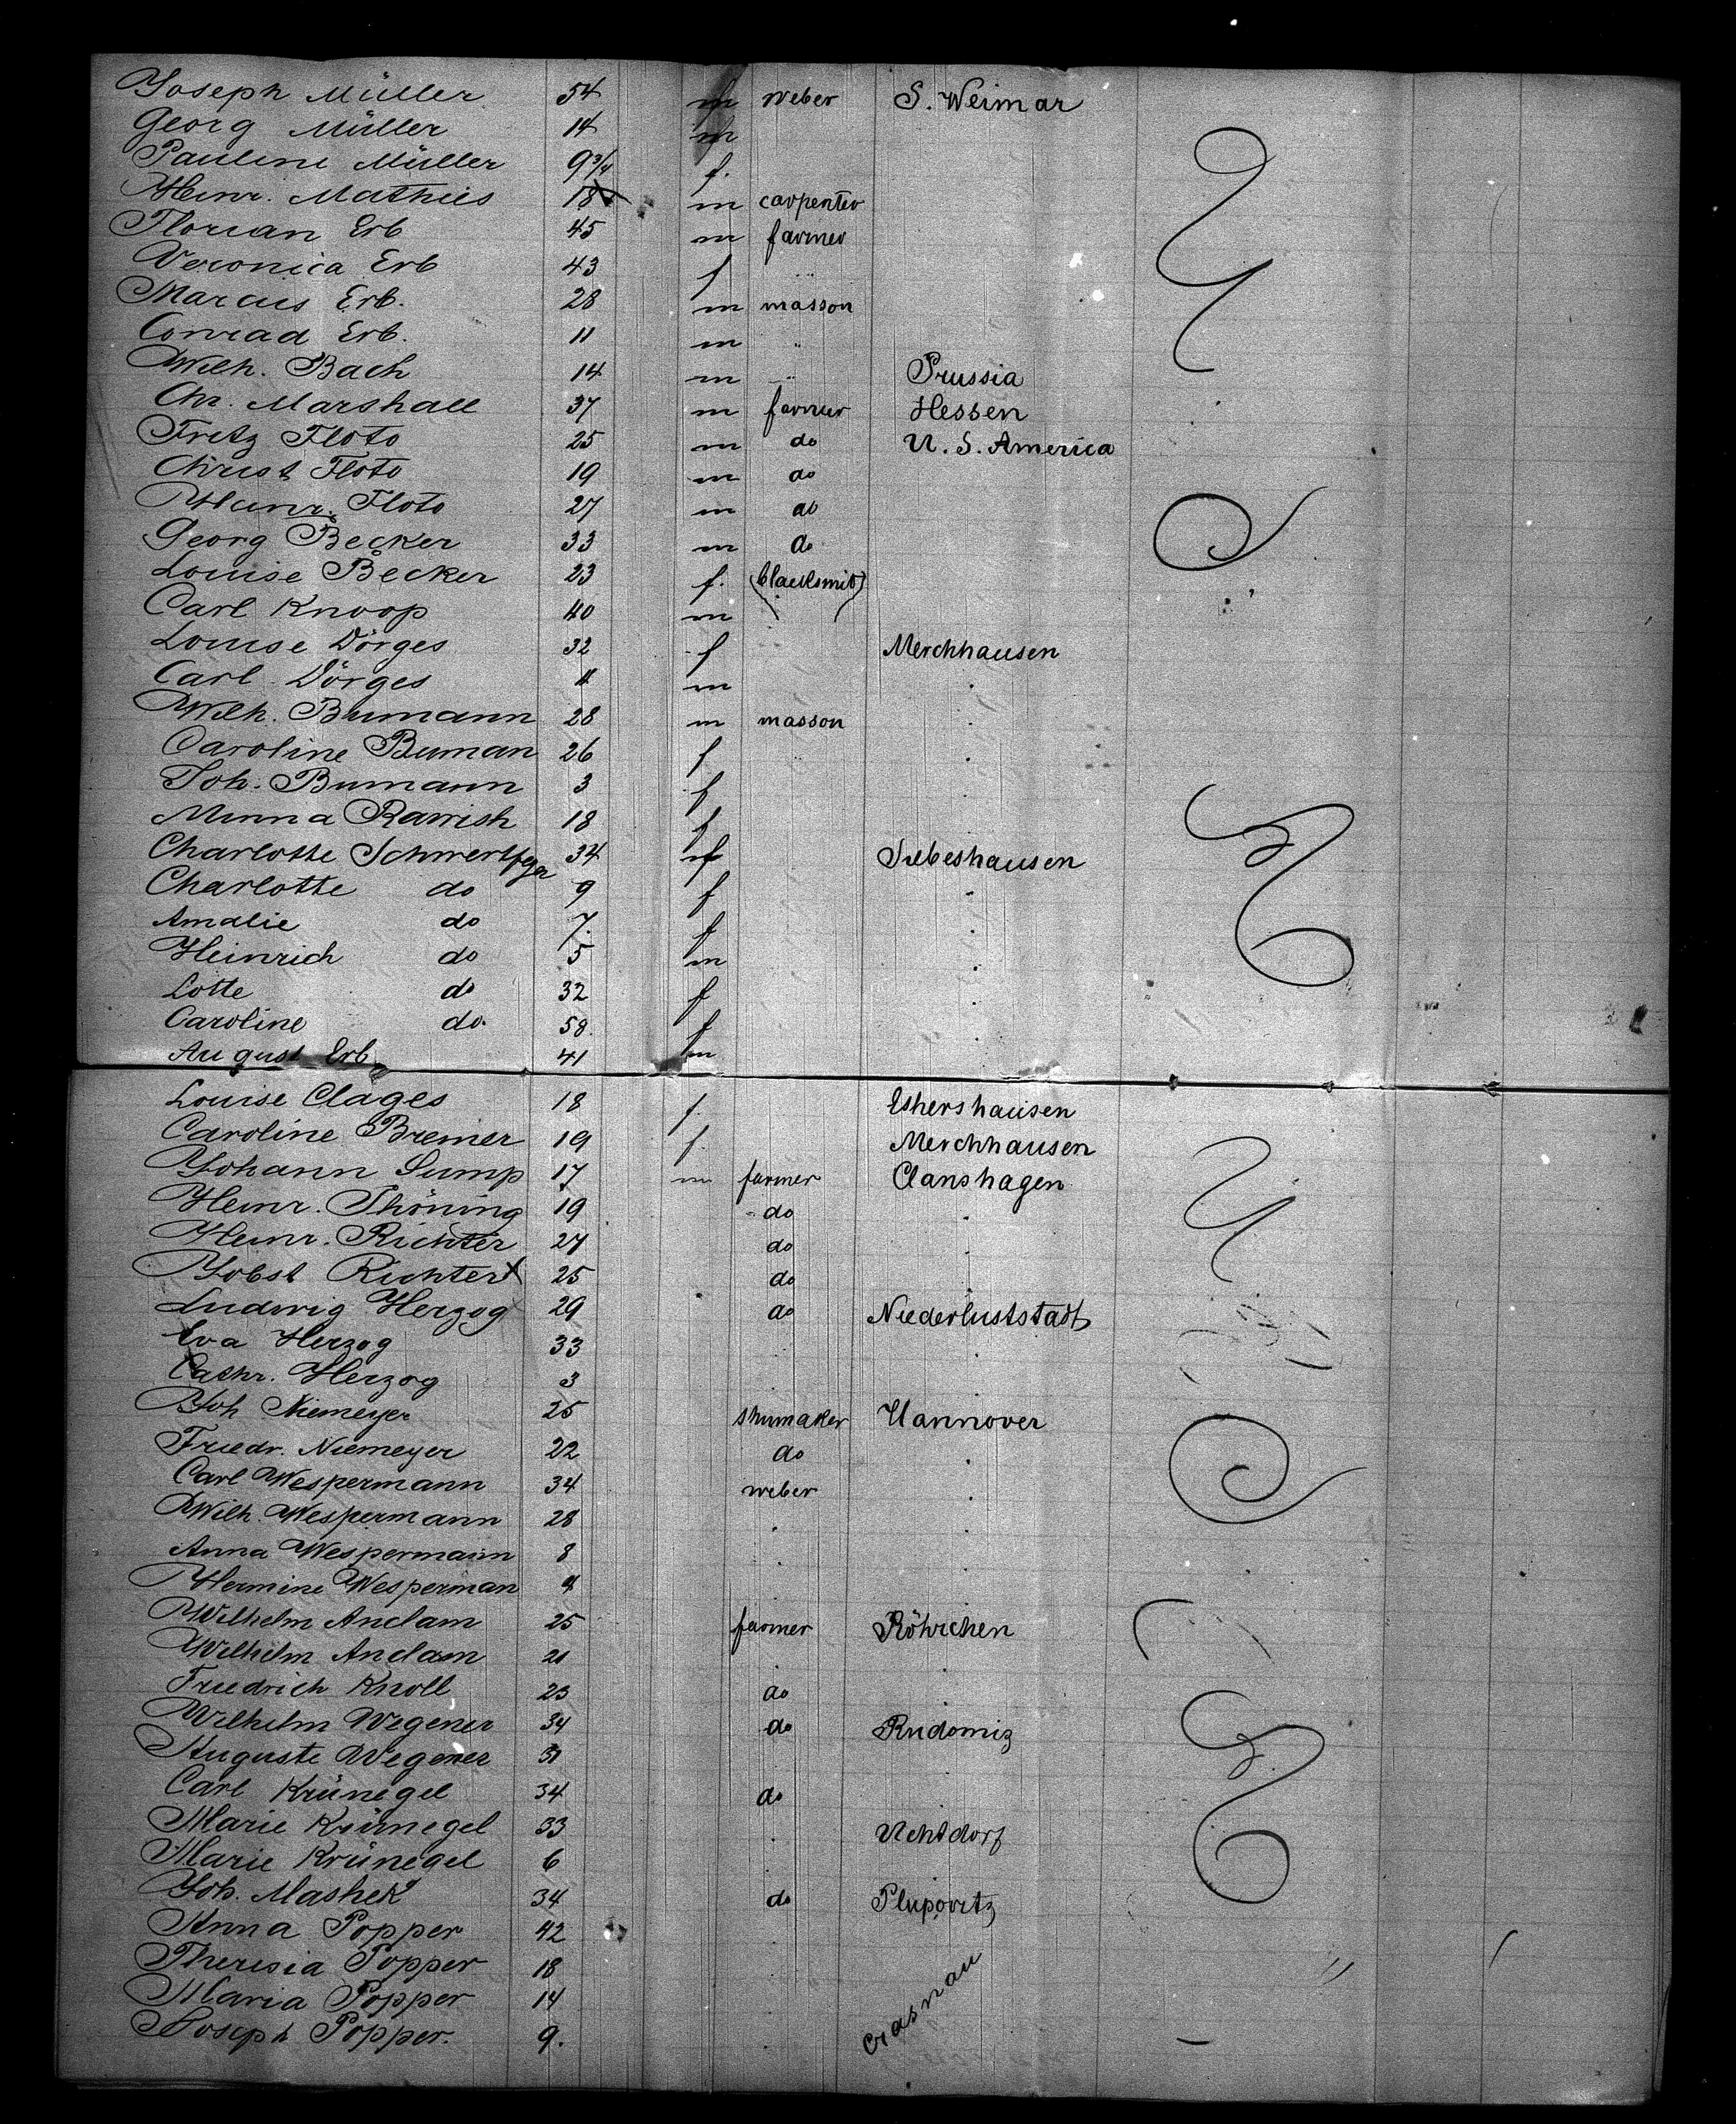 Joseph Müller 54 m weber S. Weimar
Georg Müller 14 m
Pauline Müller 9 3/4 f.
Heinr. Mathies 18 m carpenter
Florian Erb 45 m farmer
Veronica Erb 43 f
Marcus Erb. 28 m masson
Conrad Erb. 11 m
Wilh. Bach 14 m Prussia
Chr. Marshall 37 m farmer Hessen
Fritz Floto 25 m do U. S. America
Christ Floto 19 m do
Heinr. Floto 27 m do
Georg Becker 33 m do
Louise Becker 23 f. (blacksmit)
Carl Knoop 40 m
Louise Dörges 32 f Merchhausen
Carl Dörges m
Wilh. Bumann 28 m masson
Caroline Buman 26 f
Joh. Bumann 3 f
Minna Rawish 18 f
Charlotte Schwertfeger 34 f Siebeshausen
Charlotte do 9 f
Amalie do 7. f
Heinrich do 5 m
Lotte do 32 f
Caroline do. 58. f
August Erb 41 m
Louise Clages 18 f. Eshershausen
Caroline Bremer 19 f. Merchhausen
Johann Sump 17 m farmer Clanshagen
Heinr. Thöning 19 do
Heinr. Richter 27 do
Jobst Richter 25 do
Ludwig Herzog 29 do Niederluststadt
Eva Herzog 33
Cathr. Herzog 3
Joh Niemeyer 25 shumaker Hannover
Friedr. Niemeyer 22 do
Carl Wespermann 34 weber
Wilh. Wespermann 28
Anna Wespermann 8
Hermine Wesperman 4
Wilhelm Anclam 25 farmer Röhrchen
Wilhelm Anclam 21
Friedrich Knoll 23 do
Wilhelm Wegener 34 do Rudomiz
Auguste Wegener 31
Carl Krünegel 34 do
Marie Krünegel 33 Uchtdorf
Marie Krünegel 6
Joh. Mashek 34 do Plupovitz
Anna Popper 42
Theresia Popper 18
Maria Popper 14
Joseph Popper. 9. Crasnau